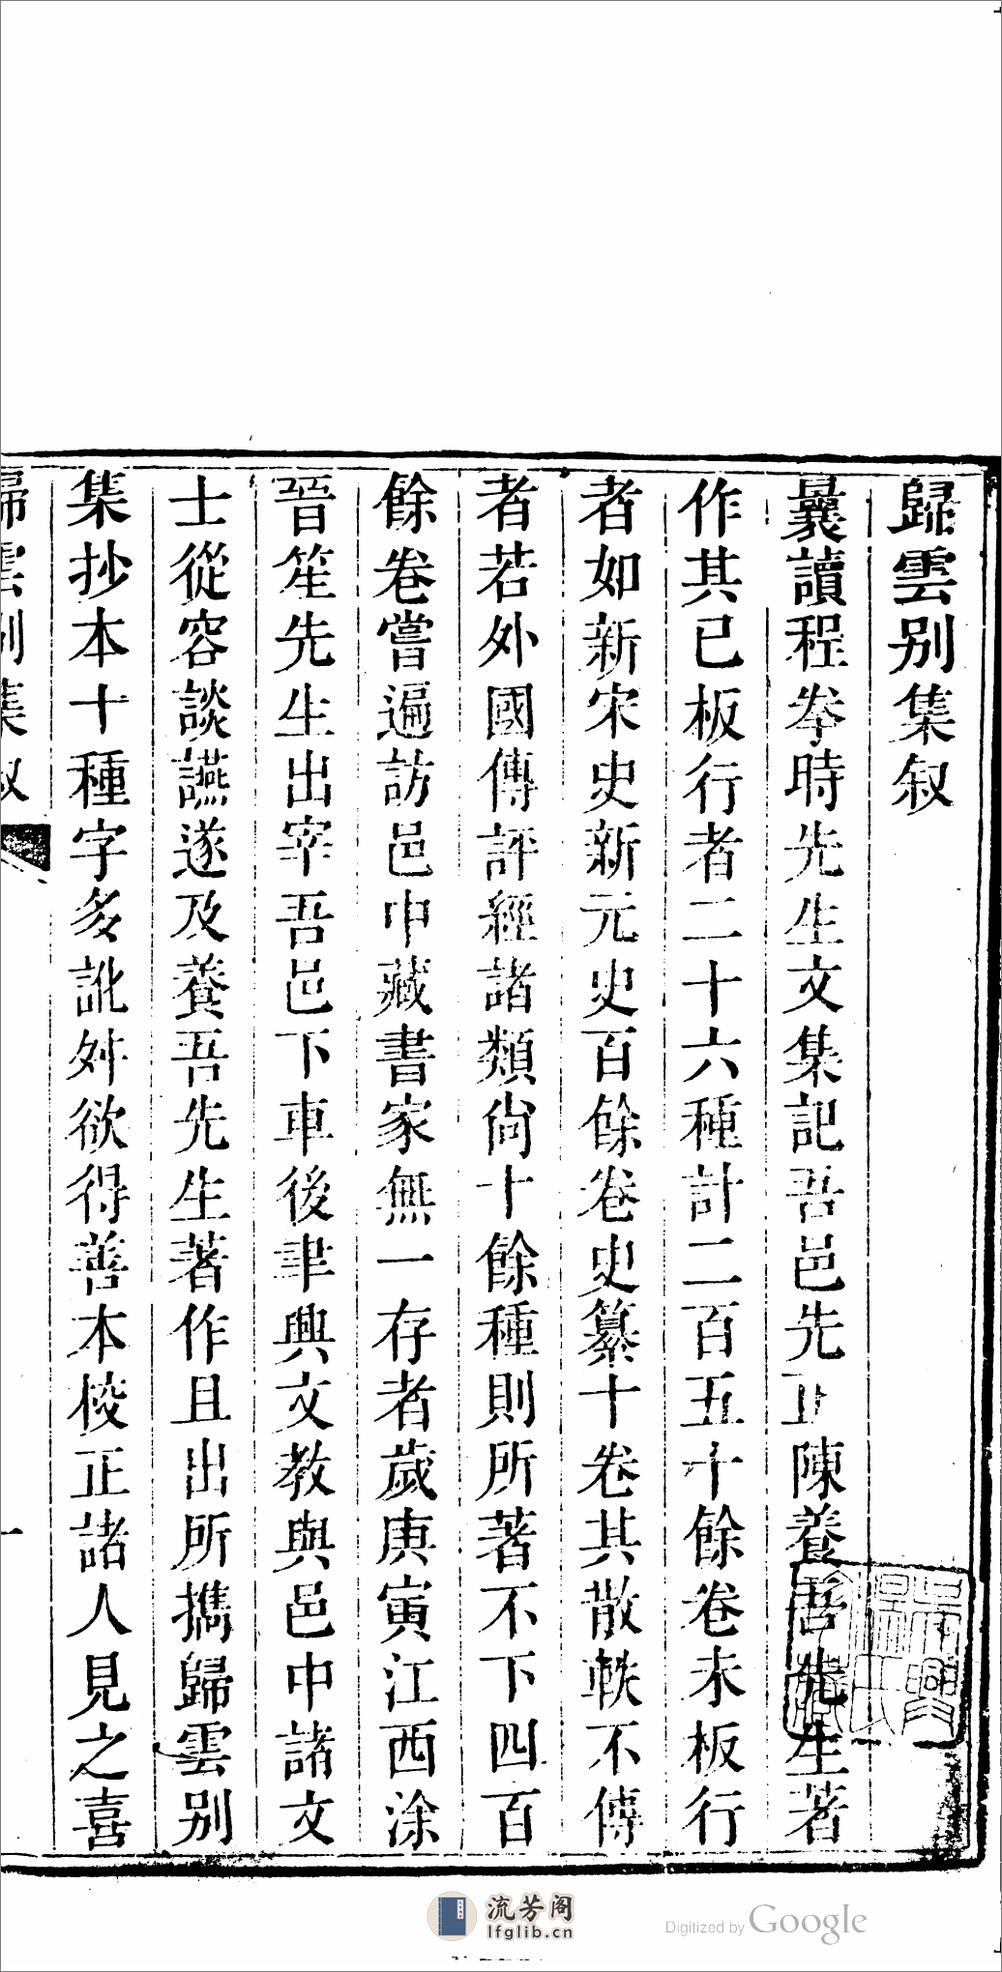 歸雲别集叙
曩讀程拳時先生文集記吾邑先正陳養吾先生著
作其已板行者二十六種計二百五十餘卷未板行
者如新宋史新元史百餘卷史纂十卷其散軼不傳
者若外國傳評經諸類尙十餘種則所著不下四百
餘卷嘗遍訪邑中藏書家無一存者歲庚寅江西涂
晉笙先生出宰吾邑下車後聿興文教與邑中諸文
士從容談讌遂及養吾先生著作且出所攜歸雲别
集抄本十種字多訛舛欲得善本校正諸人見之喜
歸雲别集叙
一
流芳阁
lfglib.cn
Digitized by Google